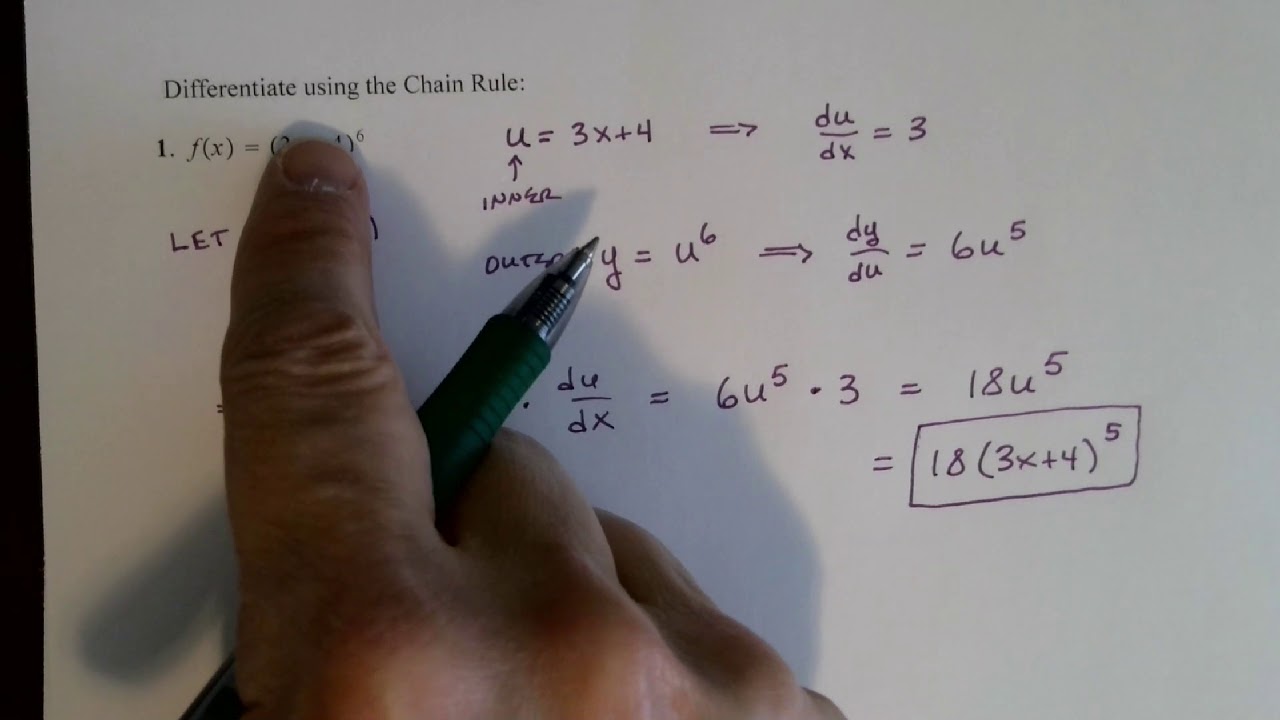 Differentiate using the Chain Rule:
1. f(x) = ( )⁶
u = 3x+4 ⇒ du/dx = 3
↑
INNER
LET )
y = u⁶ ⇒ dy/du = 6u⁵
= · du/dx = 6u⁵ · 3 = 18u⁵
= 18(3x+4)⁵